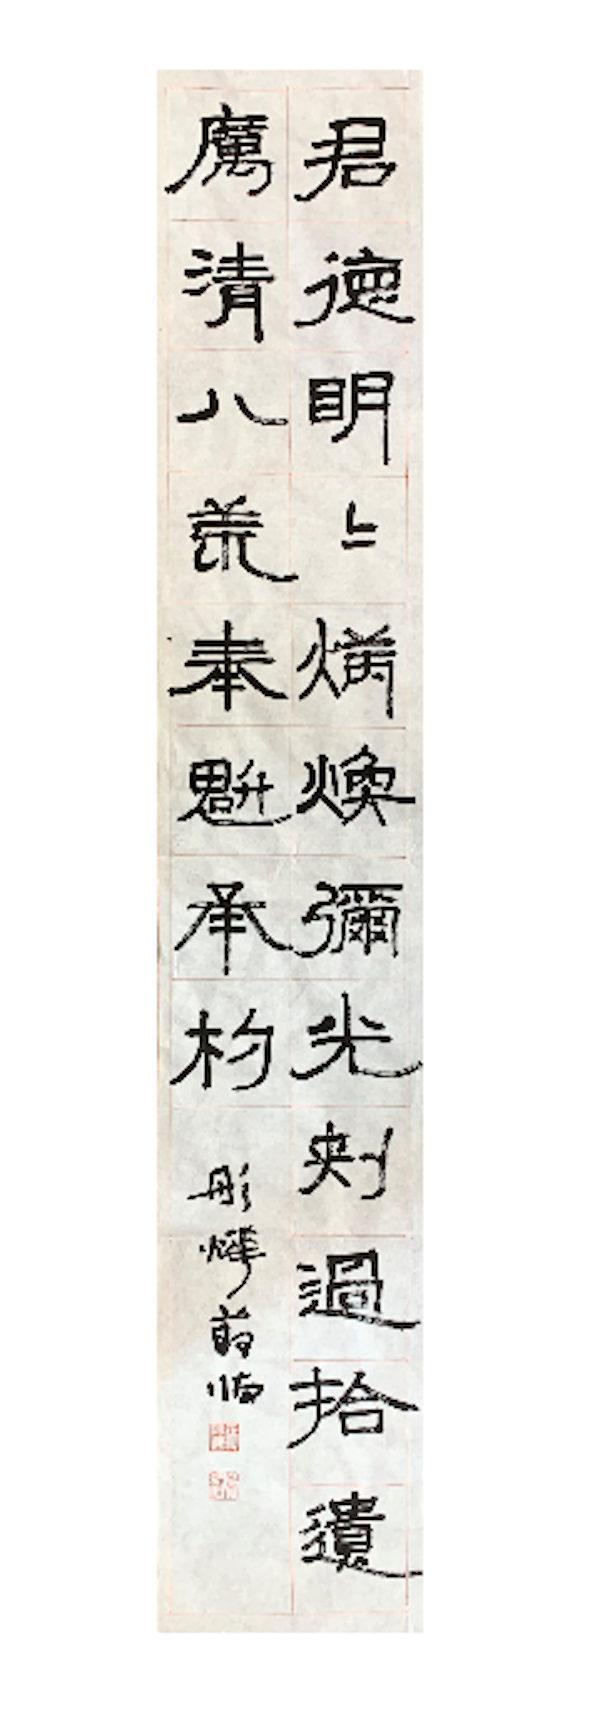 君德明〻炳煥彌光刺過拾遺
厲清八荒奉魁承杓
彤燁臨